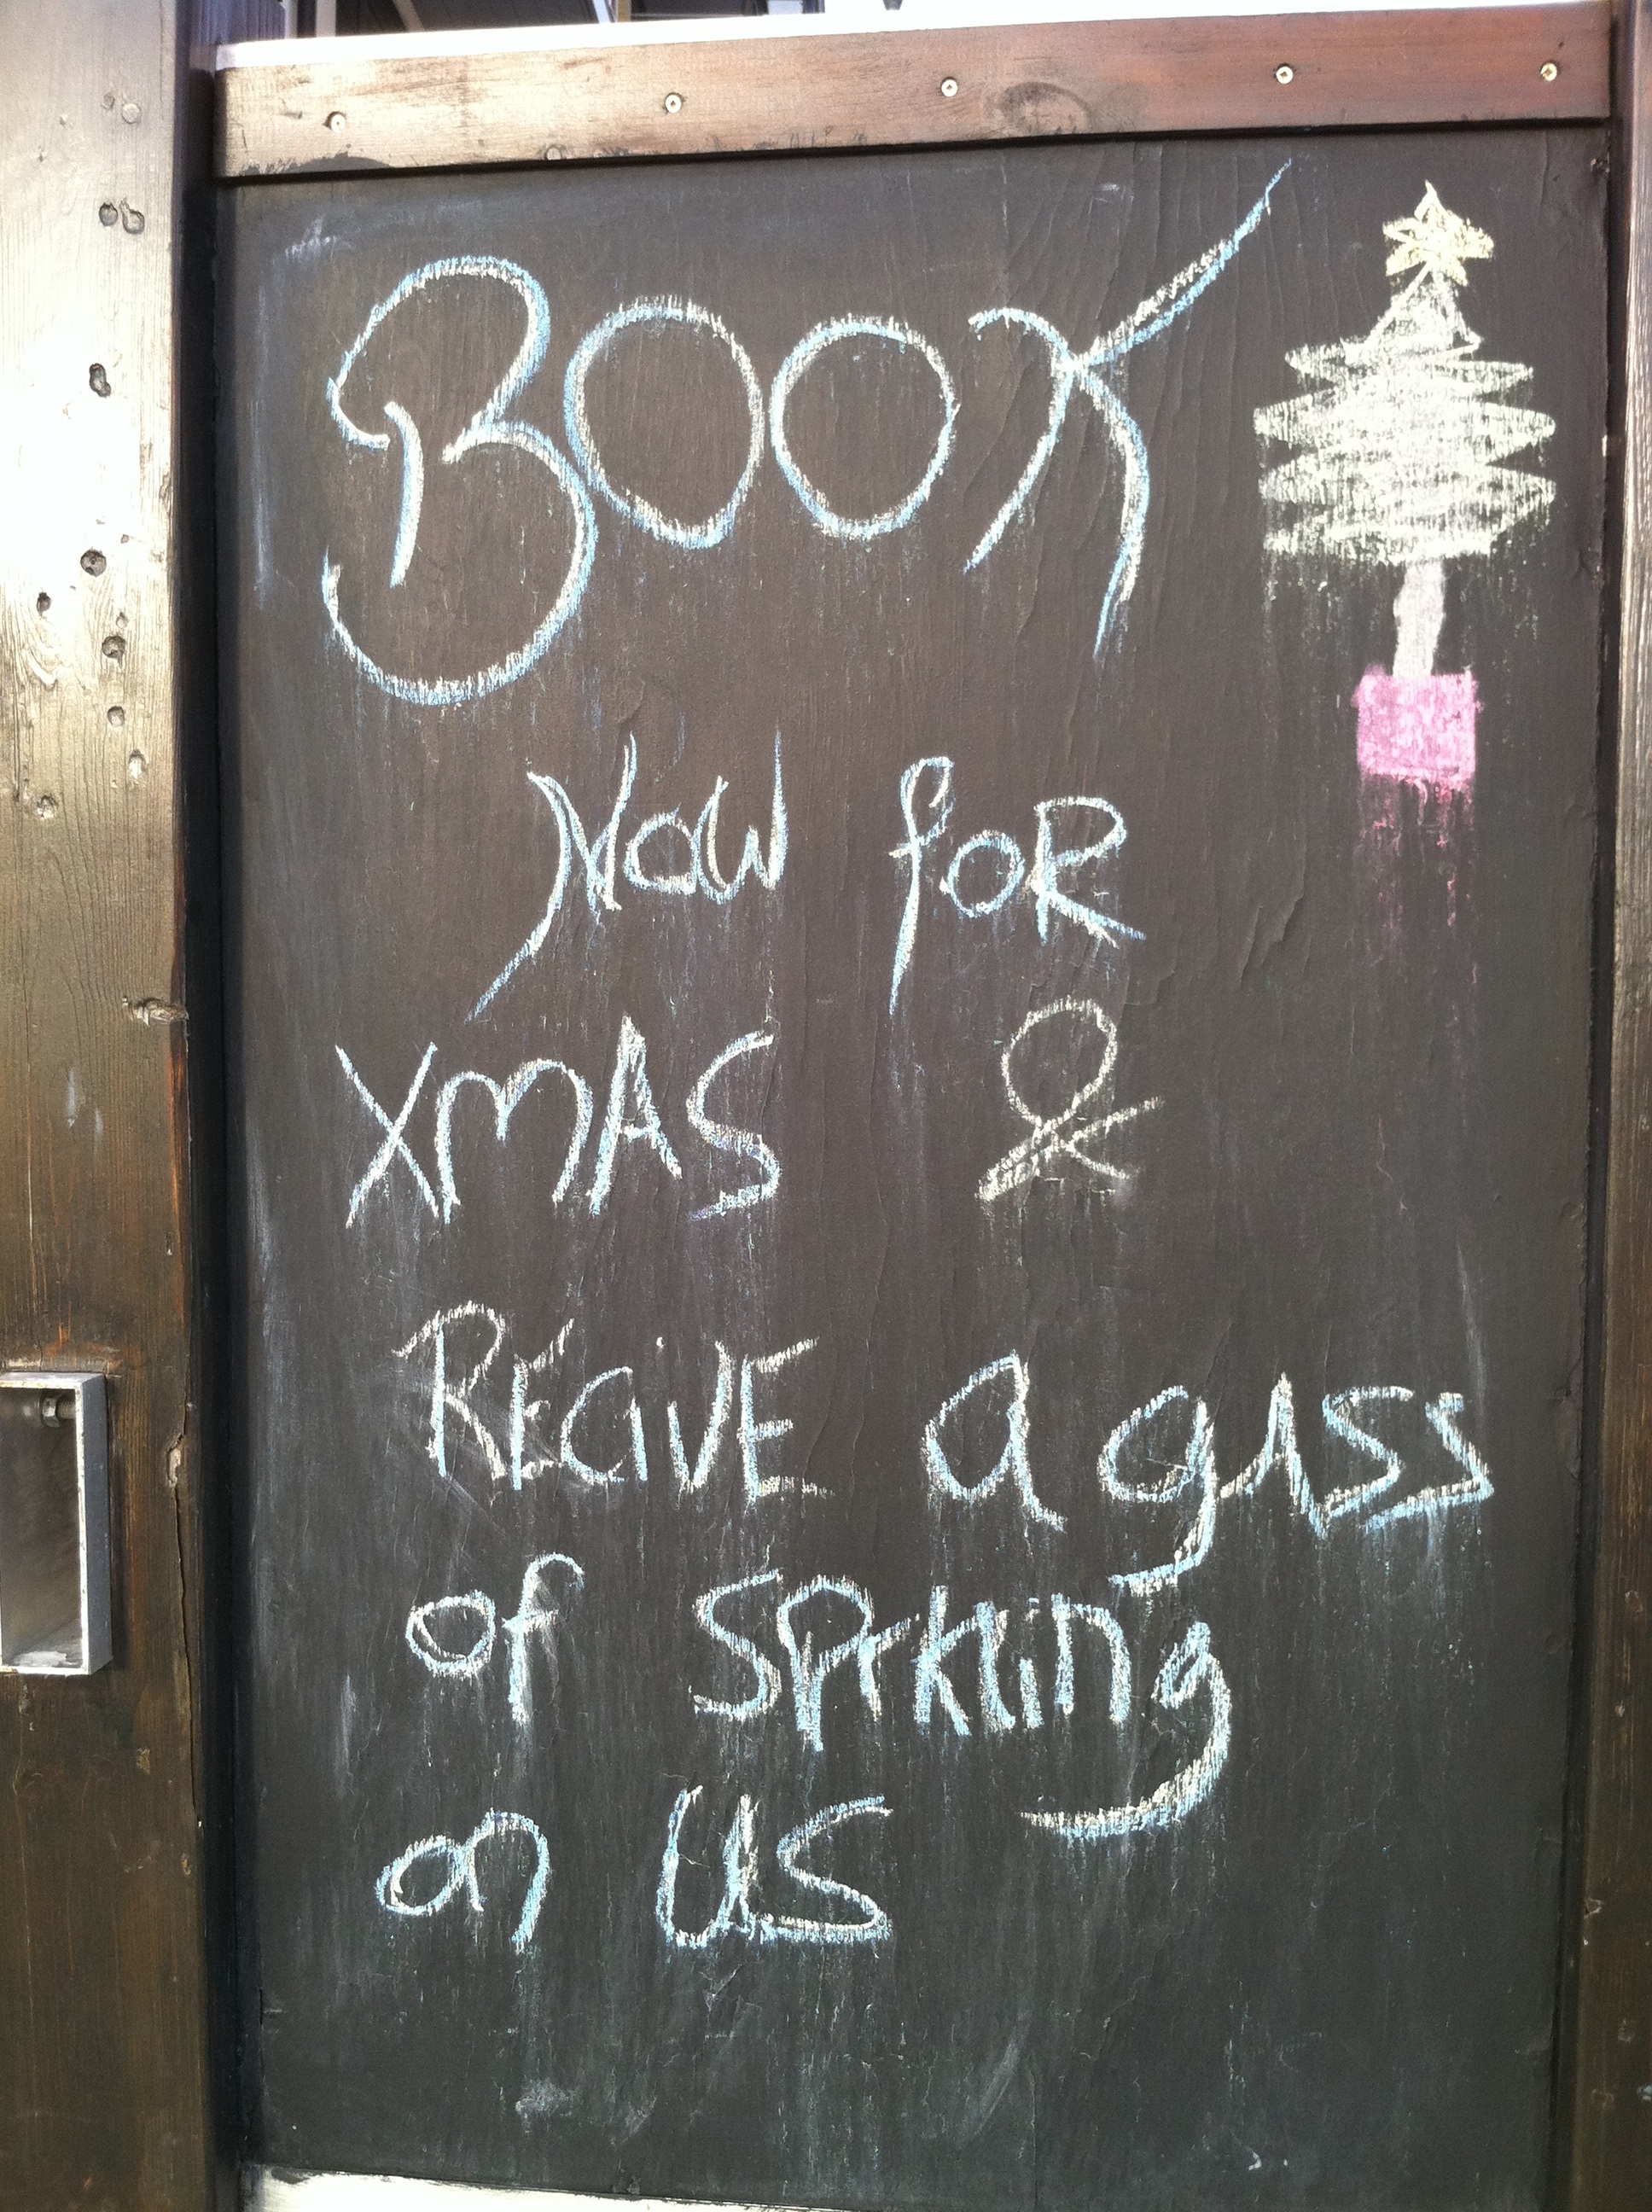 BOOK
NOW foR
XMAS &
RECiVE a gASS
of SPrkling
on US